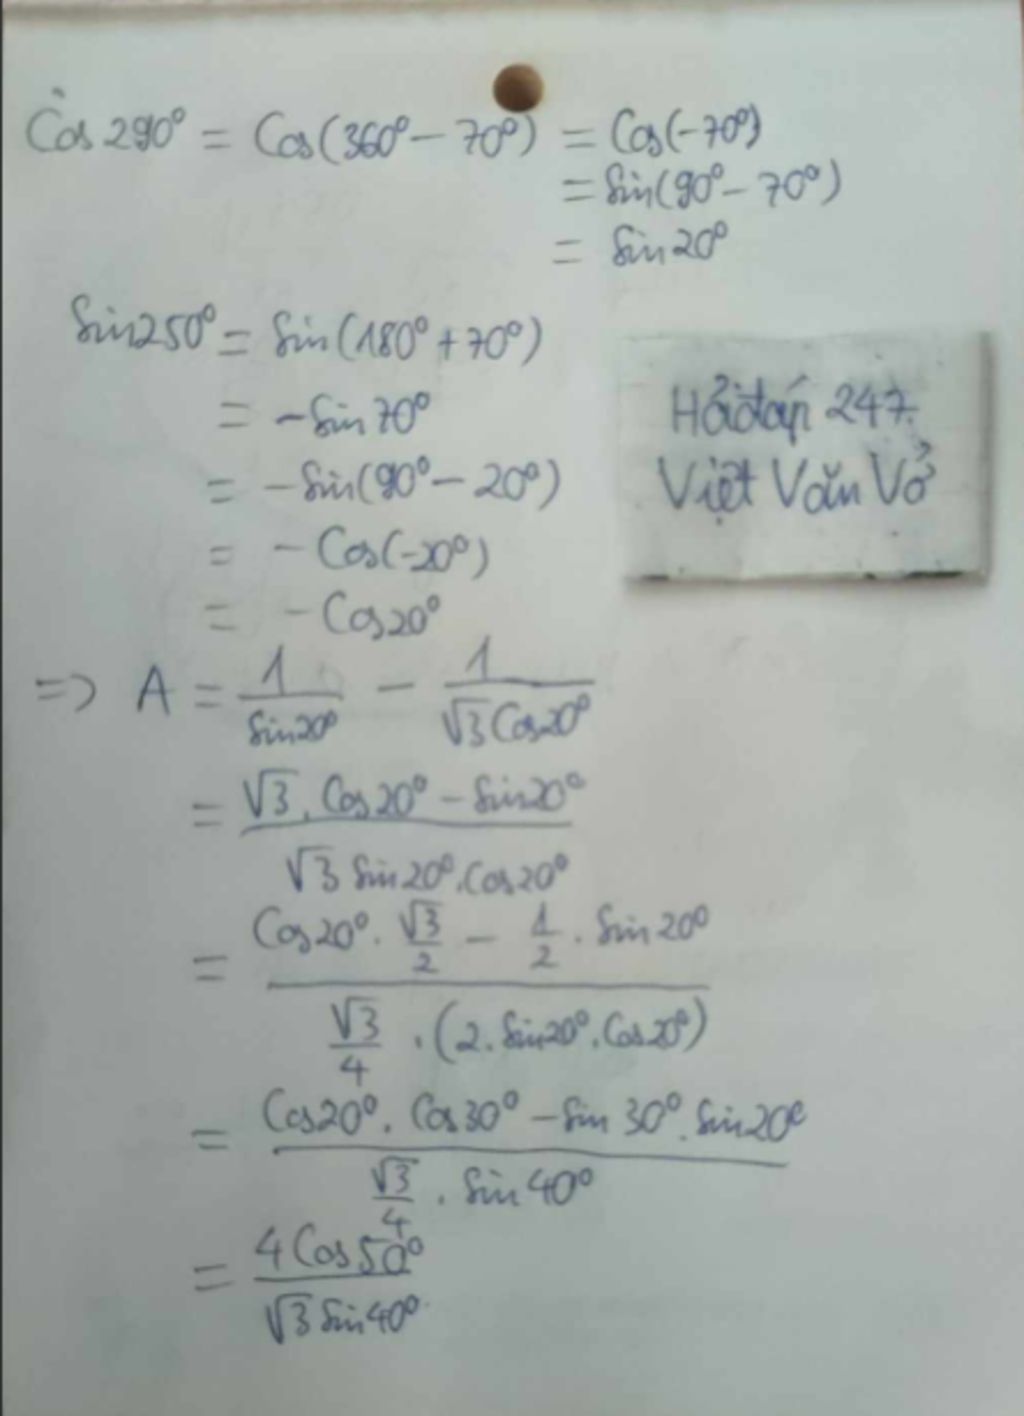 Cos 290° = Cos(360° - 70°) = Cos(-70°)
= Sin(90° - 70°)
= Sin20°
Sin250° = Sin(180° + 70°)
= -Sin70°
= -Sin(90° - 20°)
= - Cos(-20°)
= - Cos20°
Hỏiđáp 247.
Việt Văn Vở
=> A = 1/Sin20° - 1/√3Cos20°
= √3.Cos20° - Sin20°/√3 Sin20°.Cos20°
= Cos20°.√3/2 - 1/2.Sin20°/√3/4.(2.Sin20°.Cos20°)
= Cos20°.Cos30° - Sin 30°.Sin20°/√3/4.Sin40°
= 4Cos50°/√3 Sin40°